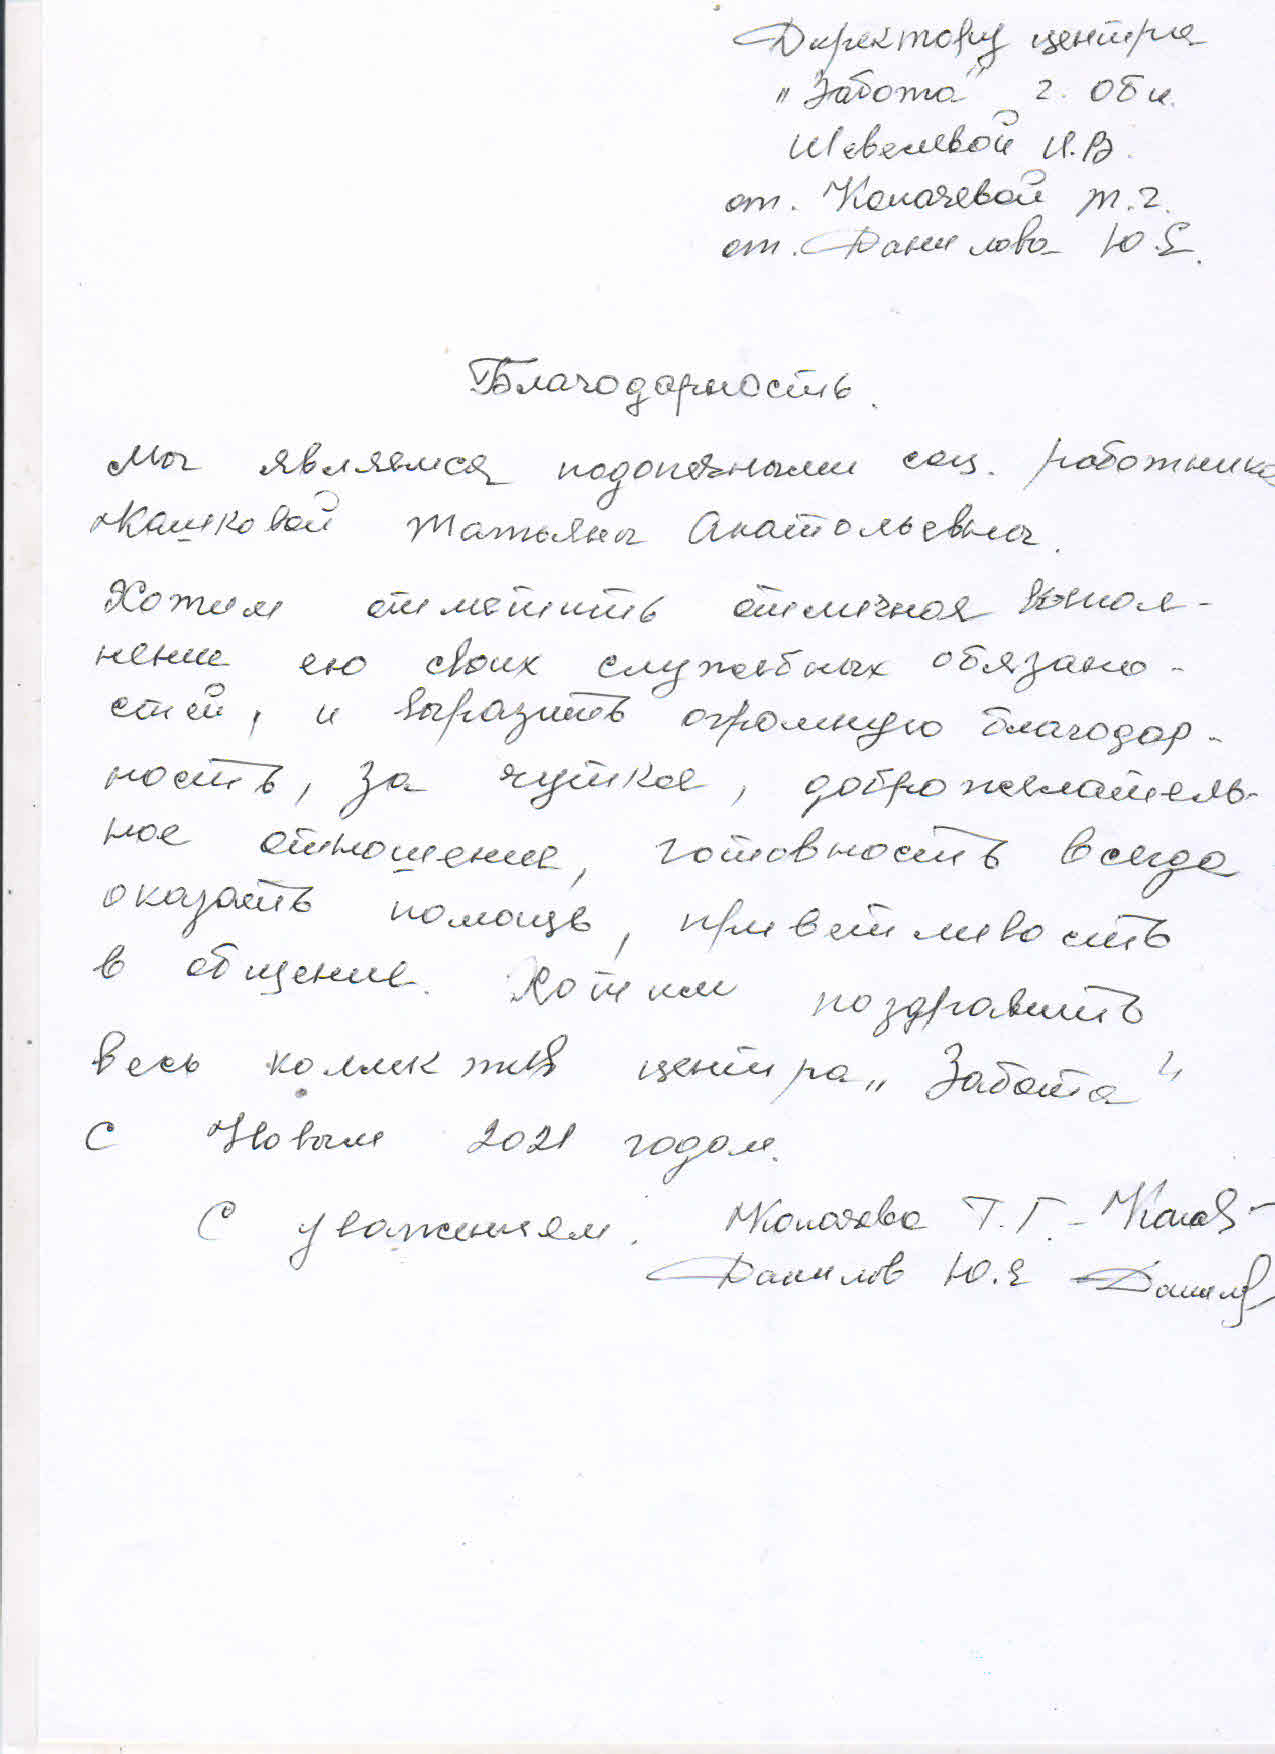 Директору центра
„Забота" г. Оби
Шевелевой И.В.
от. Копачевой Т.Г.
от. Данилова Ю.Е.
Благодарность.
Мы являемся подопечными соц. работника
Кашковой Татьяны Анатольевны.
Хотим отметить отличное выпол-
нение ею своих служебных обязано-
стей, и выразить огромную благодар-
ность, за чуткое, доброжелатель-
ное отношение, готовность всегда
оказать помощь, приветливость
в общение. Хотим поздравить
весь коллектив центра „Забота"
с Новым 2021 годом.
С уважением. Копачева Т.Г. -
Данилов Ю.Е Данилов